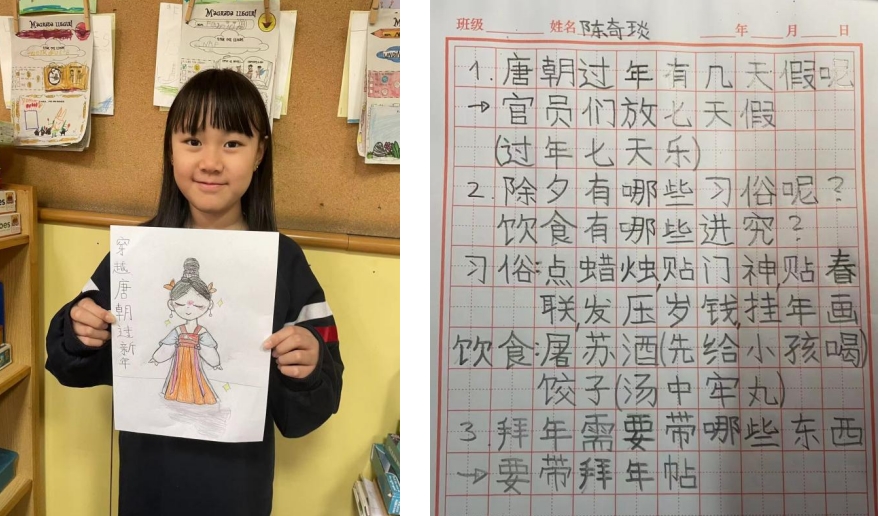 MAGNADA LLEGIR!
MAGNADA LLEGIR!
穿越唐朝过新年
班级 姓名 陈奇琰 年 月 日
1. 唐朝过年有几天假呢
→ 官员们放七天假
(过年七天乐)
2. 除夕有哪些习俗呢?
饮食有哪些进究?
习俗:点蜡烛,贴门神,贴春
联,发压岁钱,挂年画
饮食:屠苏酒(先给小孩喝)
饺子(汤中牢丸)
3. 拜年需要带哪些东西
→ 要带拜年帖